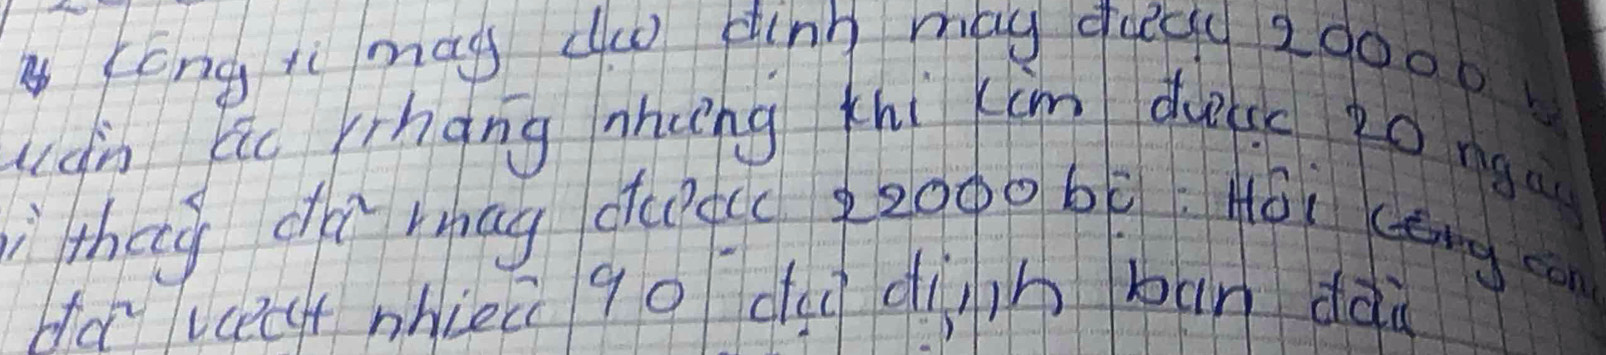 công ti may dự định may được 20000 b
uần áo / tháng nhưng khi làm được 20 ngày
ì thấy đã may được 22000 bộ. Hỏi công con
đã vượt nhiêu % dự định ban đầu